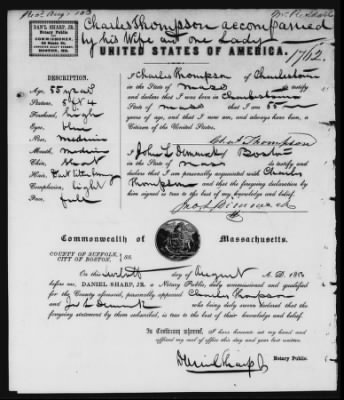 Charles Thompson accompanied
by his Wife and one Lady
DAN'L SHARP, JR.
Notary Public
COMMISSIONER,
BOSTON, MS.
UNITED STATES OF AMERICA.
1762.
DESCRIPTION.
Age, 55 years
Stature, 5 ft 4
Forehead, high
Eyes,
Nose, medium
Mouth, medium
Chin, short
Hair,
Complexion, light
Face, full
I Charles Thompson of Charlestown
in the State of Mass do testify
and declare that I was born in Charlestown
State of Mass that I am 55
years of age, and that I now am, and always have been, a
Citizen of the United States.
Chas Thompson
I John L Dimmock of Boston
in the State of Mass do testify and
declare that I am personally acquainted with Charles
Thompson and that the foregoing declaration by him
signed is true to the best of my knowledge and belief.
Commonwealth of Massachusetts.
COUNTY OF SUFFOLK,
CITY OF BOSTON. SS.
On this day of August A. D. 185
before me, DANIEL SHARP, JR. a Notary Public, duly commissioned and qualified
for the County aforesaid, personally appeared Charles Thompson
and Jno L Dimmock who being duly sworn declared that the
foregoing statement by them subscribed, is true to the best of their knowledge and belief.
In Testimony whereof, I have hereunto set my hand and
official seal of office this day and year last written.
Daniel Sharp Jr
Notary Public.